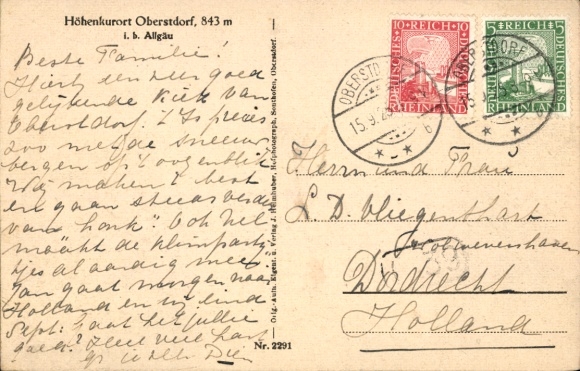 Höhenkurort Oberstdorf, 843 m
i. b. Allgäu
Beste Familie!
Hierbij een zeer goed
gelijkende kiek van
Oberstdorf. 't Is precies
zoo met de sneeuw
bergen op 't oogenblik
Wij maken 't best
en gaan steeds verder
van honk". Ook Nel
maakt de klimparty-
tjes al aardig mee.
Jan gaat morgen naar
Holland en wij eind
Sept. Gaat het jullie
goed? Zeer veel hart.
gr. v. allen Dien
Orig.-Aufn. Eigent. u. Verlag J. Heimhuber, Hofphotograph, Sonthofen, Oberstdorf.
Nr. 2291
10 REICH 10
DEUTSCHES
RHEINLAND
5 REICH 5
DEUTSCHES
RHEINLAND
OBERSTDORF
15.9.25
b
Herrn und Frau
L. D. Vliegenthart
Dordrecht
Holland